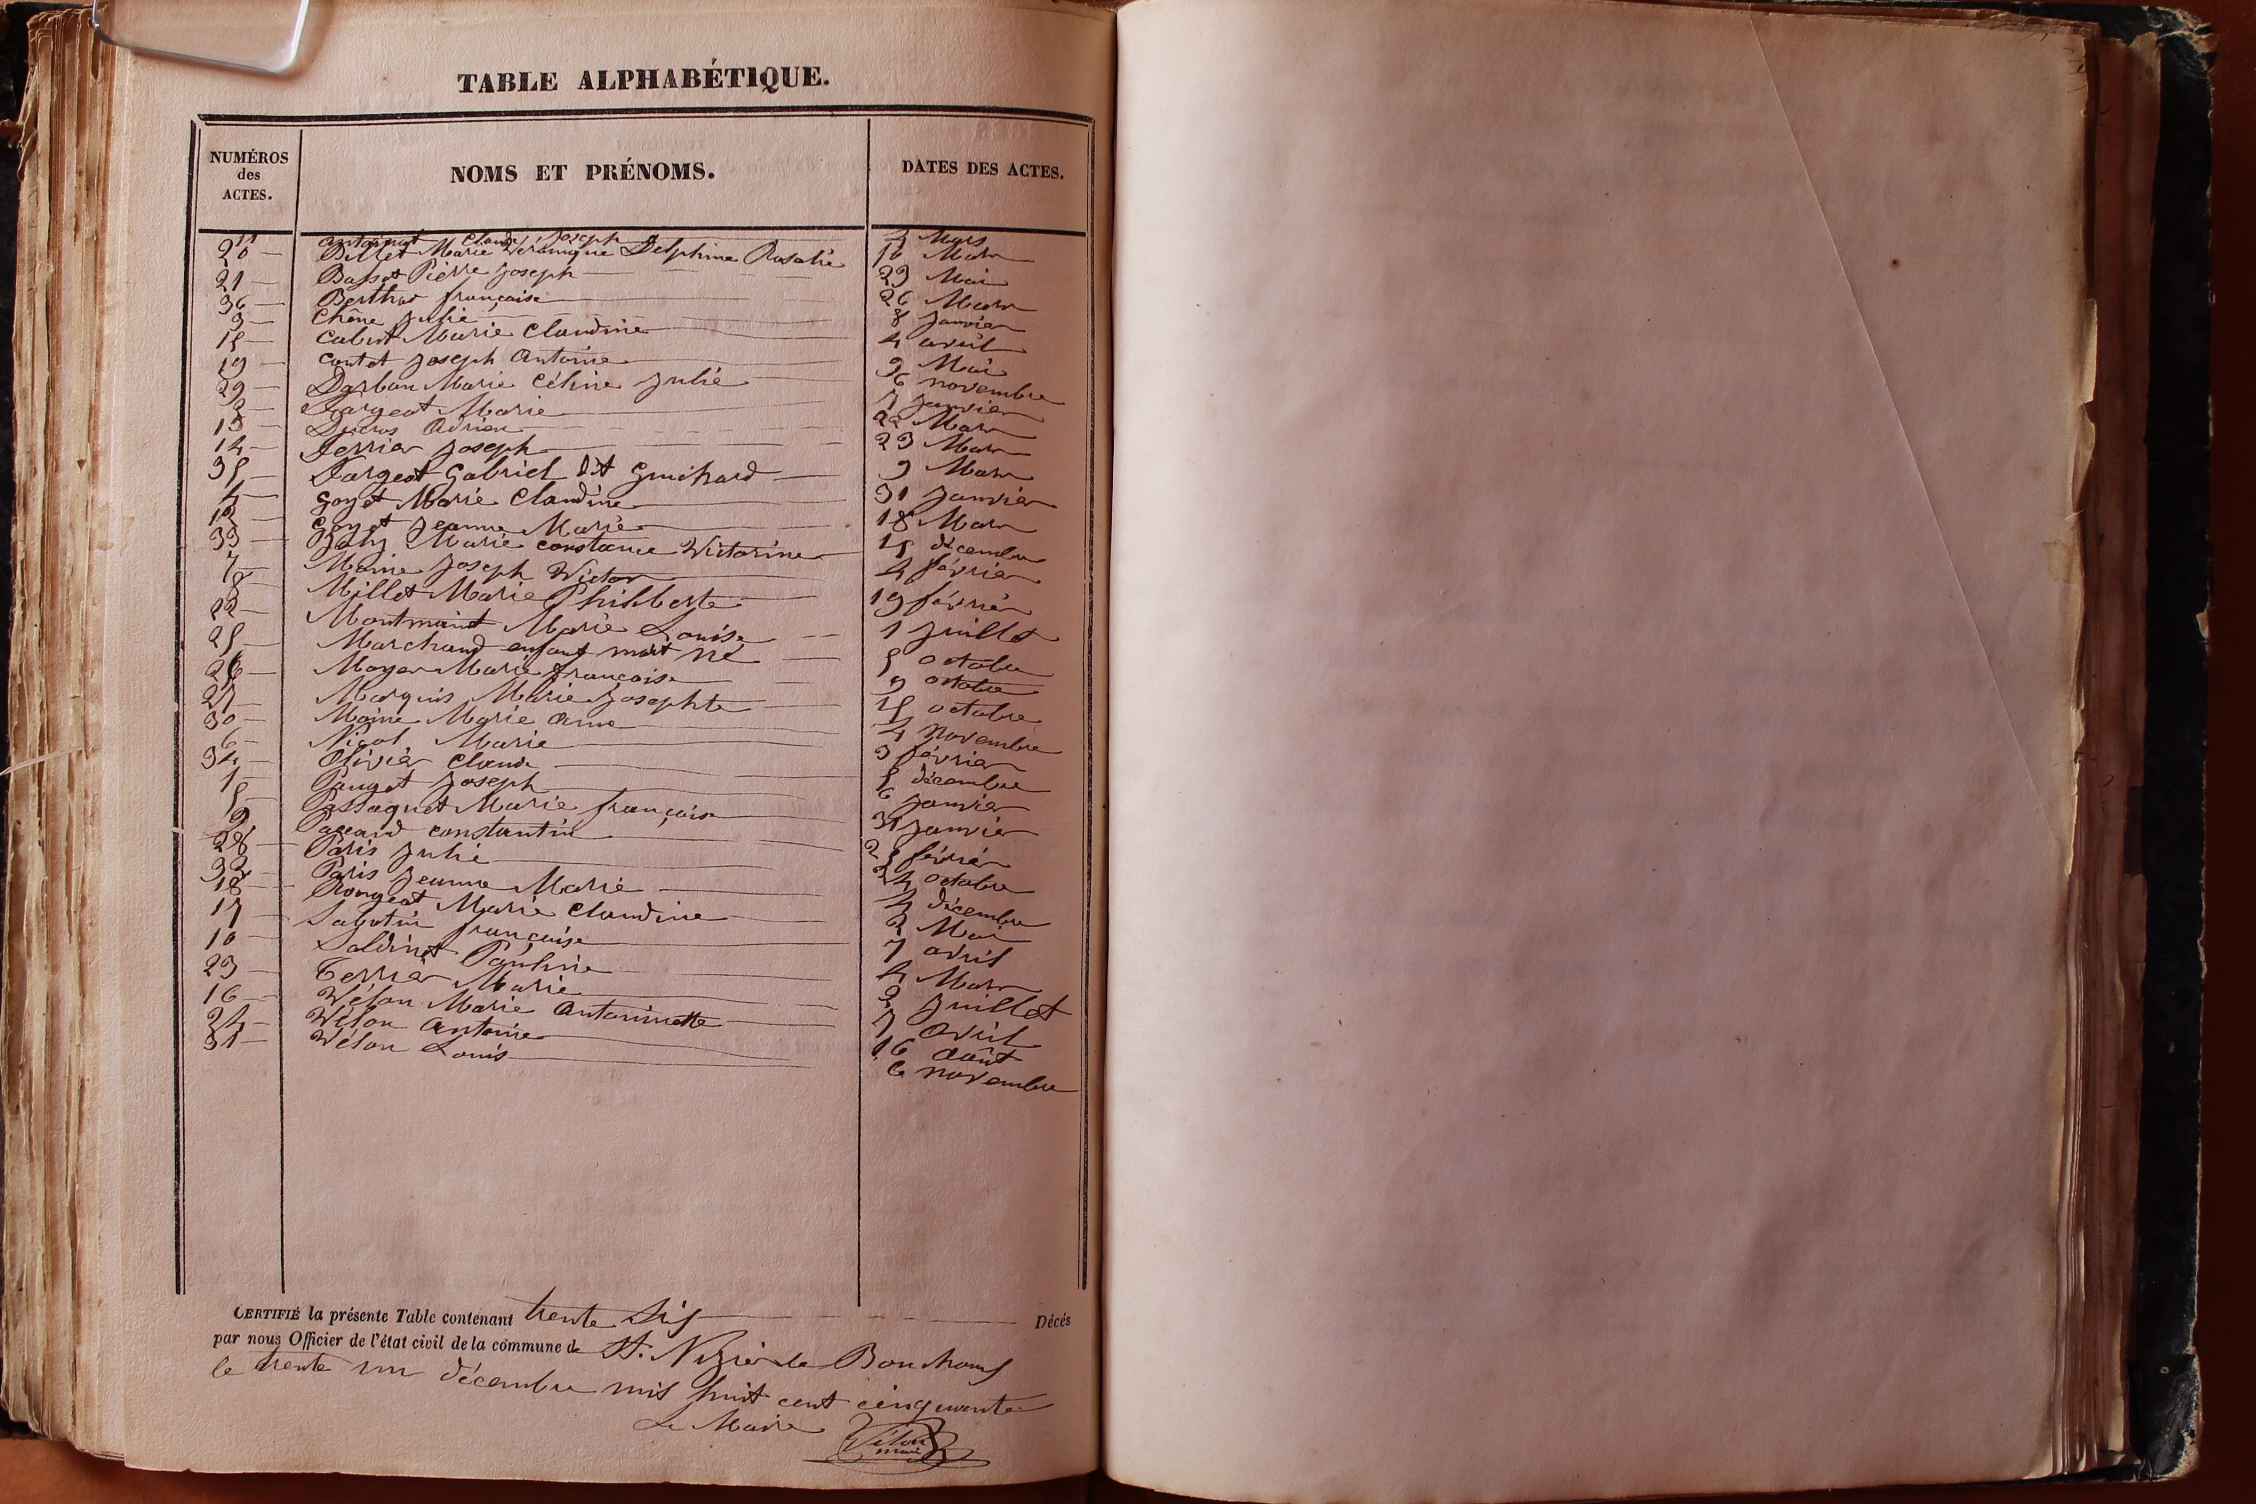 TABLE ALPHABÉTIQUE.
NUMÉROS des ACTES. NOMS ET PRÉNOMS. DATES DES ACTES.
11 Antoinat Claude Joseph 4 Mars
20 Billet Marie Véronique Delphine Rosalie 10 Mars
21 Basset Pierre Joseph 29 Mai
36 Berthod françoise 26 Mars
3 Chêne Julie 8 Janvier
15 Marie Claudine 4 avril
19 Contet Joseph Antoine 9 Mai
29 Darban Marie Céline Julie 6 novembre
2 Fargeat Marie 7 Janvier
13 Ducros Adrien 22 Mars
14 Ferrier Joseph 23 Mars
35 Fargeat Gabriel dit Guichard 9 Mars
4 Goyet Marie Claudine 31 Janvier
12 Goyet Jeanne Marie 18 Mars
33 Marie constance Victorine 15 décembre
7 Moine Joseph Victor 4 février
8 Millet Marie Philiberte 19 février
22 Marie Louise 1 Juillet
25 Marchand enfant mort né 5 octobre
26 Moyer Marie françoise 9 octobre
27 Marquis Marie Josephte 15 octobre
30 Moine Marie Anne 4 Novembre
6 Nicol Marie 3 février
34 Olivier Claude 5 décembre
1 Pauget Joseph 6 Janvier
5 Passaquet Marie françoise 31 Janvier
9 Paccard constantin 25 février
28 Paris Julie 24 octobre
32 Paris Jeanne Marie 4 décembre
18 Rongeat Marie Claudine 2 Mai
17 Sabotin françoise 7 avril
10 Saldinet Pauline 4 Mars
23 Terrier Marie 2 Juillet
16 Vélon Marie Antoinette 7 Avril
24 Vélon Antoine 16 août
31 Vélon Louis 6 novembre
CERTIFIÉ la présente Table contenant trente Six Décés
par nous Officier de l'état civil de la commune de St. Nizier le Bouchoux
le trente un décembre mil huit cent cinquante
Le Maire
Vélon
maire